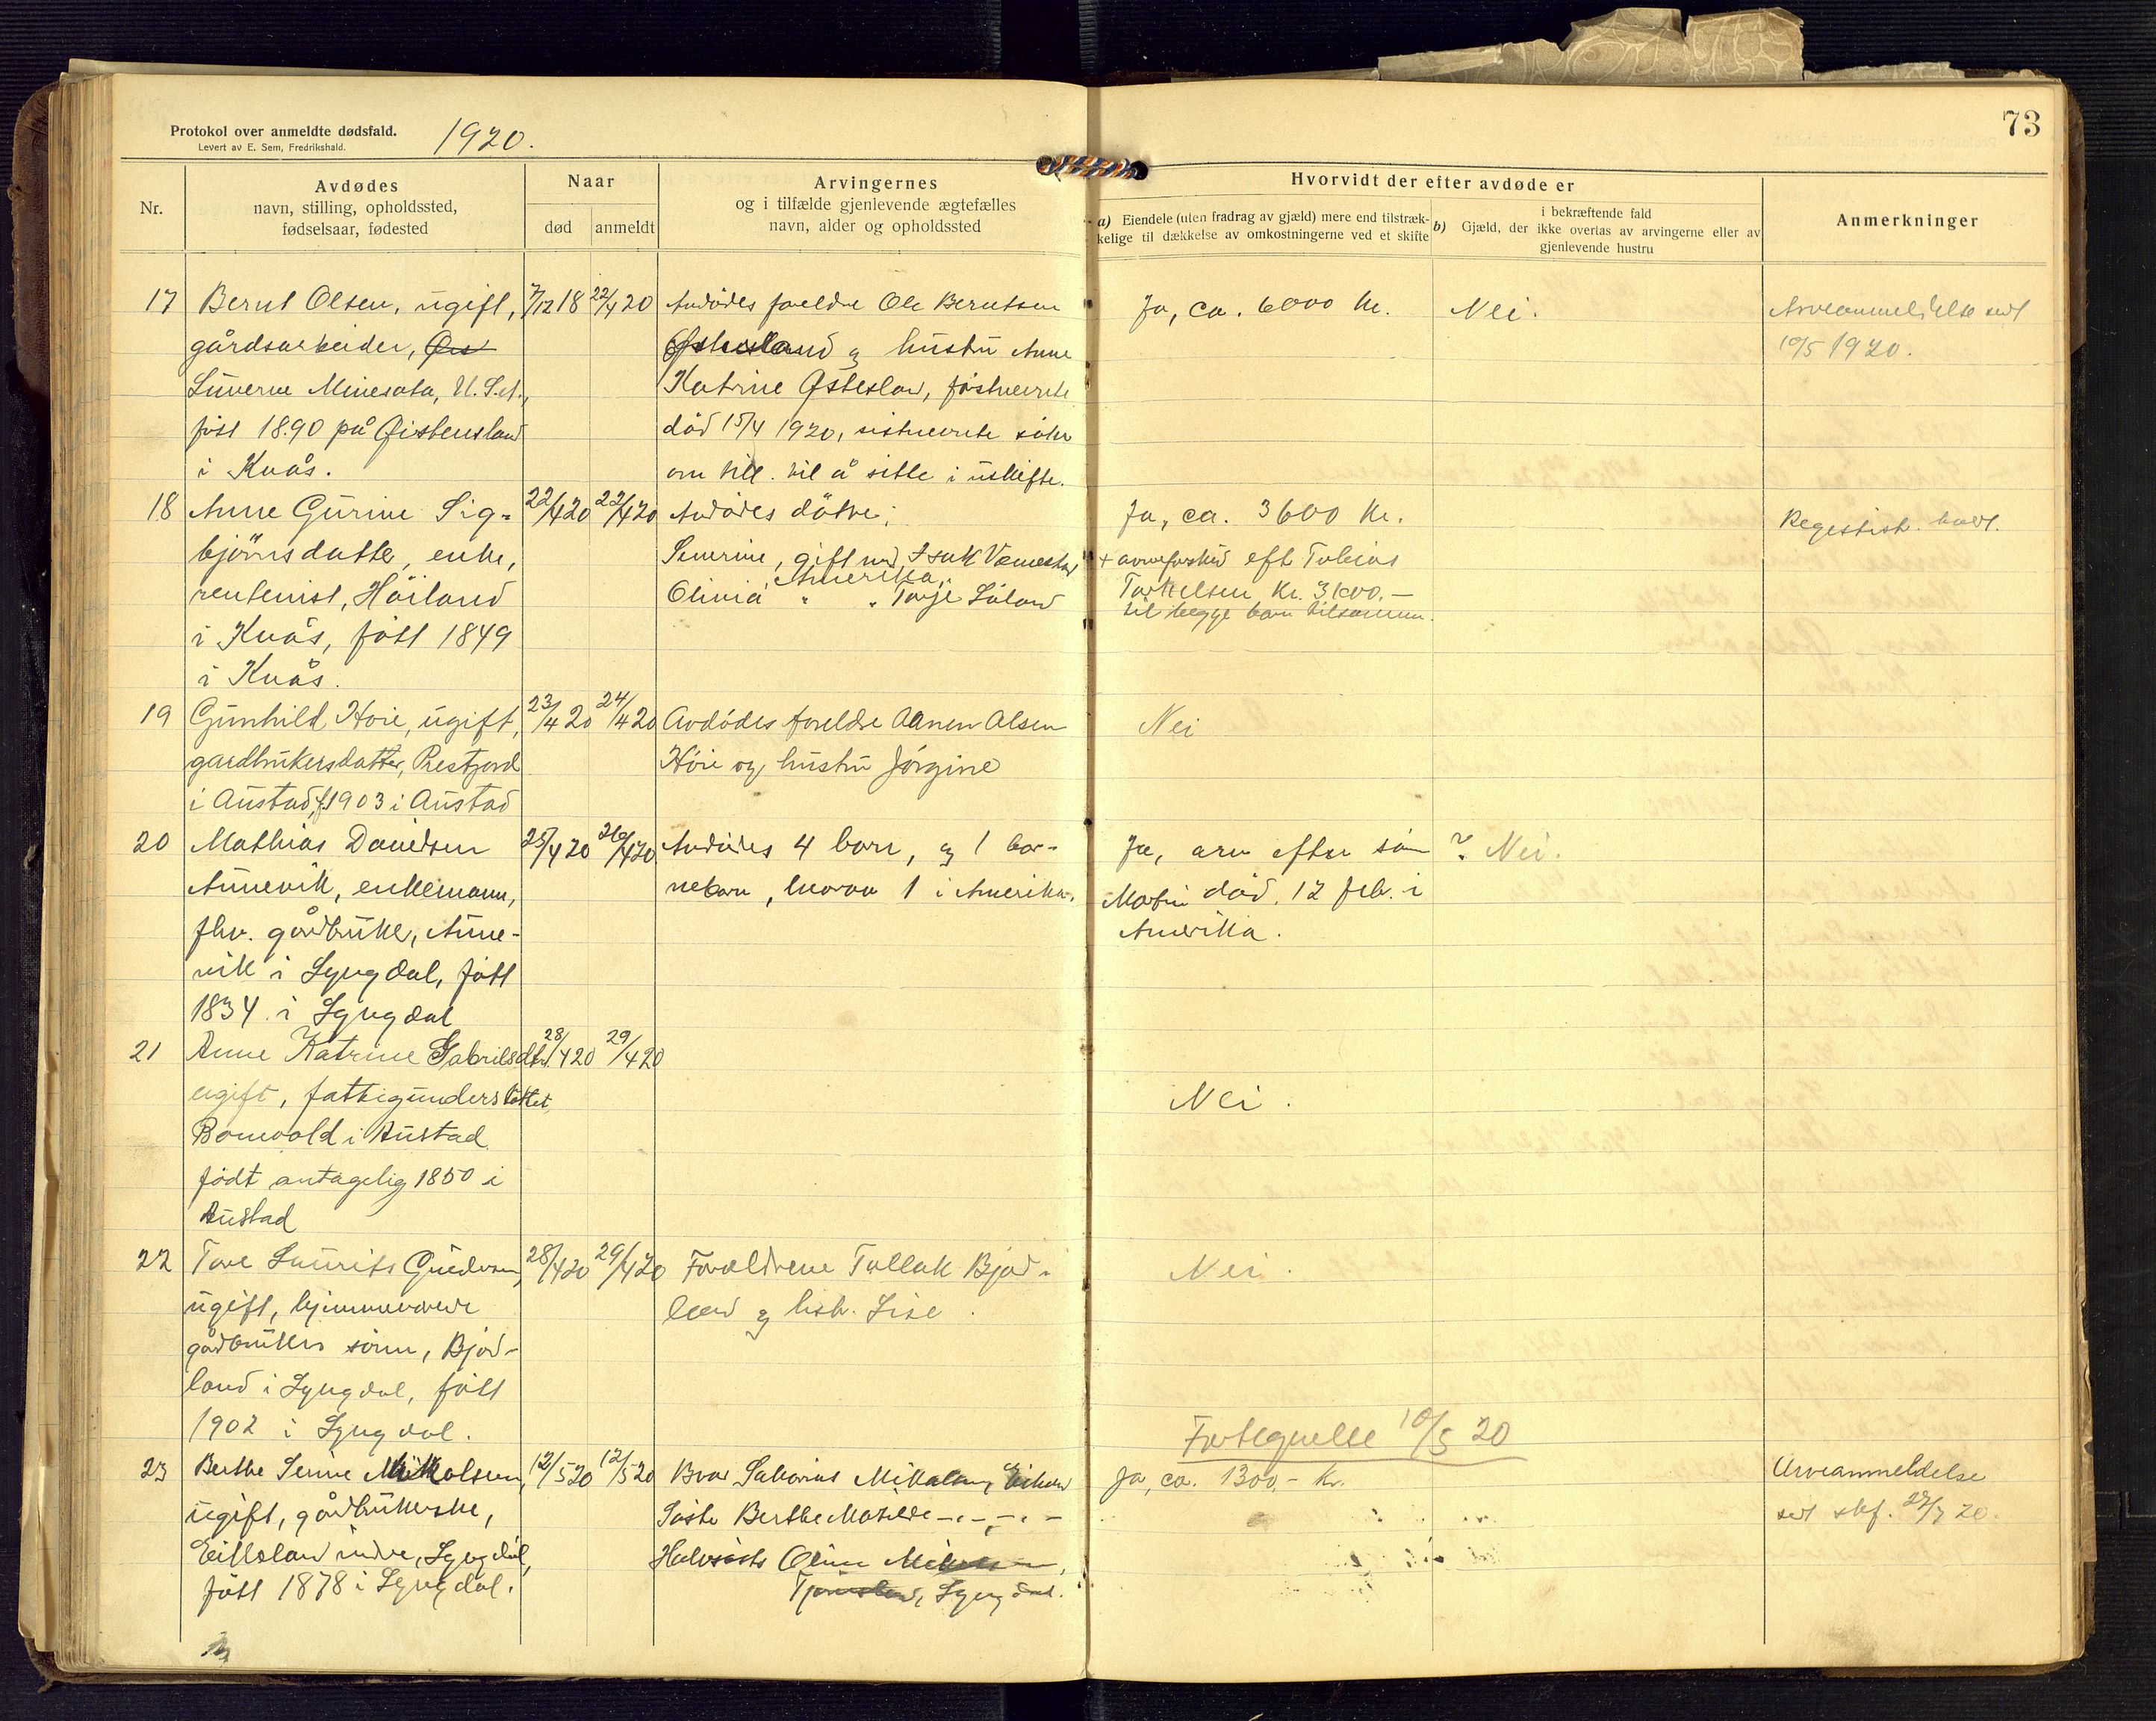 73
Protokol over anmeldte dødsfald.
Levert av E. Sem, Fredrikshald.
1920.
Nr.
Avdødes
navn, stilling, opholdssted,
fødselsaar, fødested
Naar
død
anmeldt
Arvingernes
og i tilfælde gjenlevende ægtefælles
navn, alder og opholdssted
Hvorvidt der efter avdøde er
a) Eiendele (uten fradrag av gjæld) mere end tilstræk-
kelige til dækkelse av omkostningerne ved et skifte
i bekræftende fald
b) Gjæld, der ikke overtas av arvingerne eller av
gjenlevende hustru
Anmerkninger
17
Bernt Olsen, ugift,
gårdsarbeider, Øis
Luverne Minesota, U.S.A.,
født 1890 på Øistensland
i Kvås.
7/12 18
22/4 20
Avdødes foreldre Ole Berntsen
Østesland og hustru Anne
Katrine Østesland, førstnevnte
död 15/4 1920, sistnevnte söker
om till. til å sitte i uskifte.
Ja, ca. 6000 kr.
Nei.
Arveanmeldelse sendt
10/5 1920.
18
Anne Gurine Sig-
björnsdatter, enke,
rentenist, Höiland
i Kvås, födt 1849
i Kvås.
22/4 20
22/4 20
Avdødes døtre:
Severine, gift med Isak
Amerika,
Olivia " " Tarje Löland
Ja, ca. 3600 kr.
+ arveforskud eft Tobias
Torkelsen kr. 3600.-
til begge barn tilsammen.
19
Gunhild Høie, ugift,
gardbrukersdatter, Prestjord
i Austad, f. 1903 i Austad
23/4 20
24/4 20
Avdødes foreldre Aanen Olsen
Høie og hustru Jörgine
Nei
20
Mathias Davidsen
Aunevik, enkemann,
fhv. gårdbruker, Aune-
vik i Lyngdal, födt
1834 i Lyngdal
25/4 20
26/4 20
Avdødes 4 barn, og 1 bar-
nebarn, hvorav 1 i Amerika.
Ja, arv efter sön
Martin död. 12 feb. i
Amerika.
? Nei.
21
Anne Katrine Gabrielsdtr.
ugift, fattigunderstöttet
i Austad
födt antagelig 1850 i
Austad
28/4 20
29/4 20
Nei.
22
Tore Laurits
ugift, hjemmeværende
gårdbrukers sönn, Bjod-
land i Lyngdal, födt
1902 i Lyngdal.
28/4 20
29/4 20
Foreldrene Tallak Bjod-
land og hstr. Lise.
Nei.
Fortegnelse 10/5 20
23
Berthe Serine Mikalsen,
ugift, gårdbrukerske,
Eikeland indre, Lyngdal,
födt 1878 i Lyngdal.
12/5 20
12/5 20
Bror Sakarias Mikalsen, Eikeland
Söster Berthe Matilde -"-"-
Halvsöster Oline
Lyngdal.
Ja, ca. 1300,- kr.
Arveanmeldelse